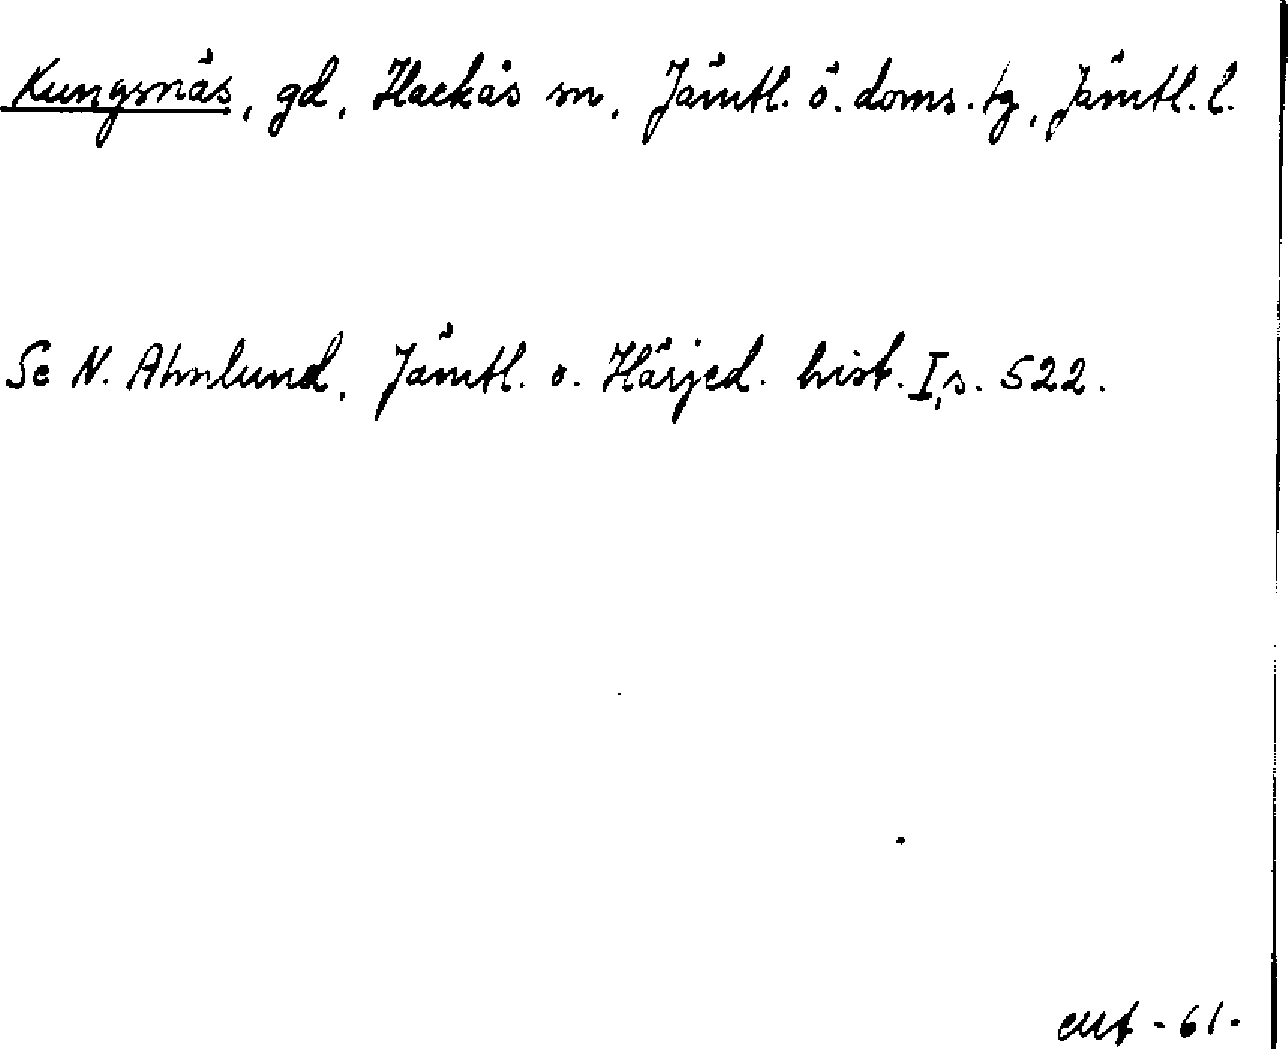 Kungsnäs, gd, Hackås sn, Jämtl. ö. doms. tg, Jämtl. l.
Se N. Ahnlund, Jämtl. o. Härjed. hist. I, s. 522.
-61.